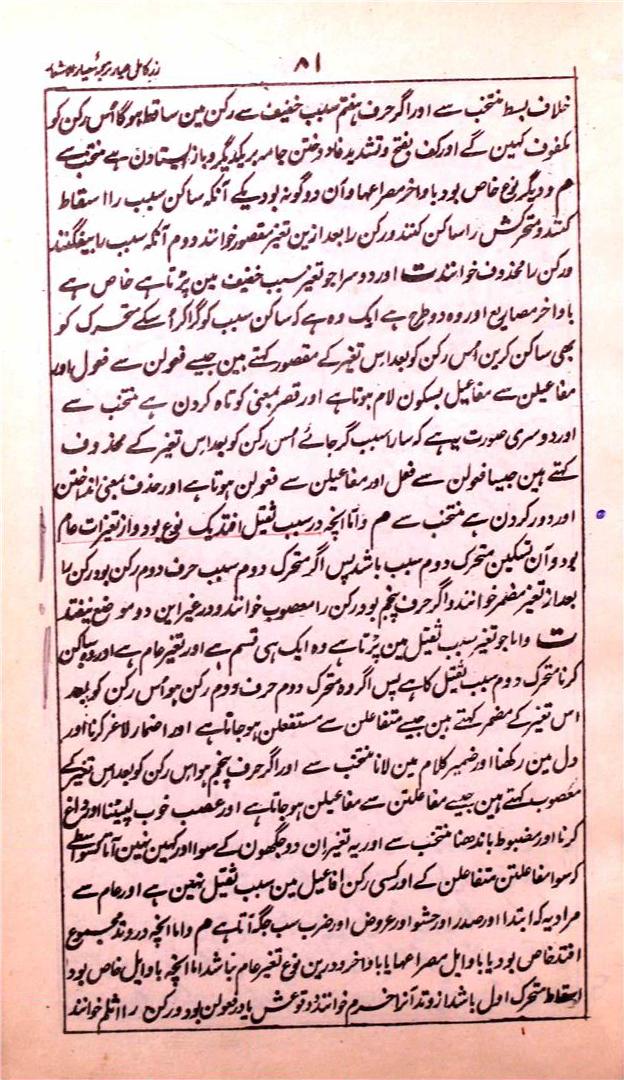 ۸۱
زر کامل عیار ترجمۂ معیار الاشعار
خلاف بسط منتخب سے اور اگر حرف ہفتم سبب خفیف سے رکن مین ساقط ہوگا اُس رکن کو
مکفوف کہین گے اور کف بفتح و تشدید فا دوختن جامہ بر یکدیگر و باز ایستادن ہے منتخب سے
ھم و دیگر نوع خاص بود باواخر مصراعہا و آن دو گونہ بود یکے آنکہ ساکن سبب را اسقاط
کنند و متحرکش را ساکن کنند و رکن را بعد ازین تغیر مقصور خوانند دوم آنکہ سبب را بیفگنند
و رکن را محذوف خوانند ت اور دوسرا جو تغیر سبب خفیف مین پڑتا ہے خاص ہے
باواخر مصاریع اور وہ دو طرح ہے ایک وہ ہے کہ ساکن سبب کو گرا کر اُسکے متحرک کو
بھی ساکن کرین اُس رکن کو بعد اس تغیر کے مقصور کہتے ہین جیسے فعولن سے فعول اور
مفاعیلن سے مفاعیل بسکون لام ہوتا ہے اور قصر بمعنی کوتاہ کردن ہے منتخب سے
اور دوسری صورت یہ ہے کہ سارا سبب گر جائے اُس رکن کو بعد اس تغیر کے محذوف
کہتے ہین جیسا فعولن سے فعل اور مفاعیلن سے فعولن ہوتا ہے اور حذف بمعنی انداختن
اور دور کردن ہے منتخب سے ھم و اما انچہ در سبب ثقیل افتد یک نوع بود و از تغیرات عام
بود و آن تسکین متحرک دوم سبب باشد پس اگر متحرک دوم سبب حرف دوم رکن بود رکن را
بعد از تغیر مضمر خوانند و اگر حرف پنجم بود رکن را معصوب خوانند و در غیر این دو موضع نیفتد
ت و اما جو تغیر سبب ثقیل مین پڑتا ہے وہ ایک ہی قسم ہے اور تغیر عام ہے اور وہ ساکن
کرنا متحرک دوم سبب ثقیل کا ہے پس اگر وہ متحرک دوم حرف دوم رکن ہو اُس رکن کو بعد
اس تغیر کے مضمر کہتے ہین جیسے متفاعلن سے مستفعلن ہو جاتا ہے اور اضمار لاغر کرنا اور
دل مین رکھنا اور ضمیر کلام مین لانا منتخب سے اور اگر حرف پنجم ہو اس رکن کو بعد اس تغیر کے
معصوب کہتے ہین جیسے مفاعلتن سے مفاعیلن ہو جاتا ہے اور عصب خوب لپیٹنا اور
کرنا اور مضبوط باندھنا منتخب سے اور یہ تغیر ان دو جگھون کے سوا اور کہین نہین آتا کسواسطے
کہ سوا مفاعلتن متفاعلن کے اور کسی رکن افاعیل مین سبب ثقیل نہین ہے اور عام سے
مراد یہ کہ ابتدا اور صدر اور حشو اور عروض اور ضرب سب جگہ آتا ہے ھم و اما انچہ در وتد مجموع
افتد خاص بود یا باوایل مصراعہا یا باواخر و درین نوع تغیر عام نباشد اما انچہ باوایل خاص بود
اسقاط متحرک اول باشد از وتد آنرا خرم خوانند و وقوعش یا در فعولن بود و رکن را اثلم خوانند